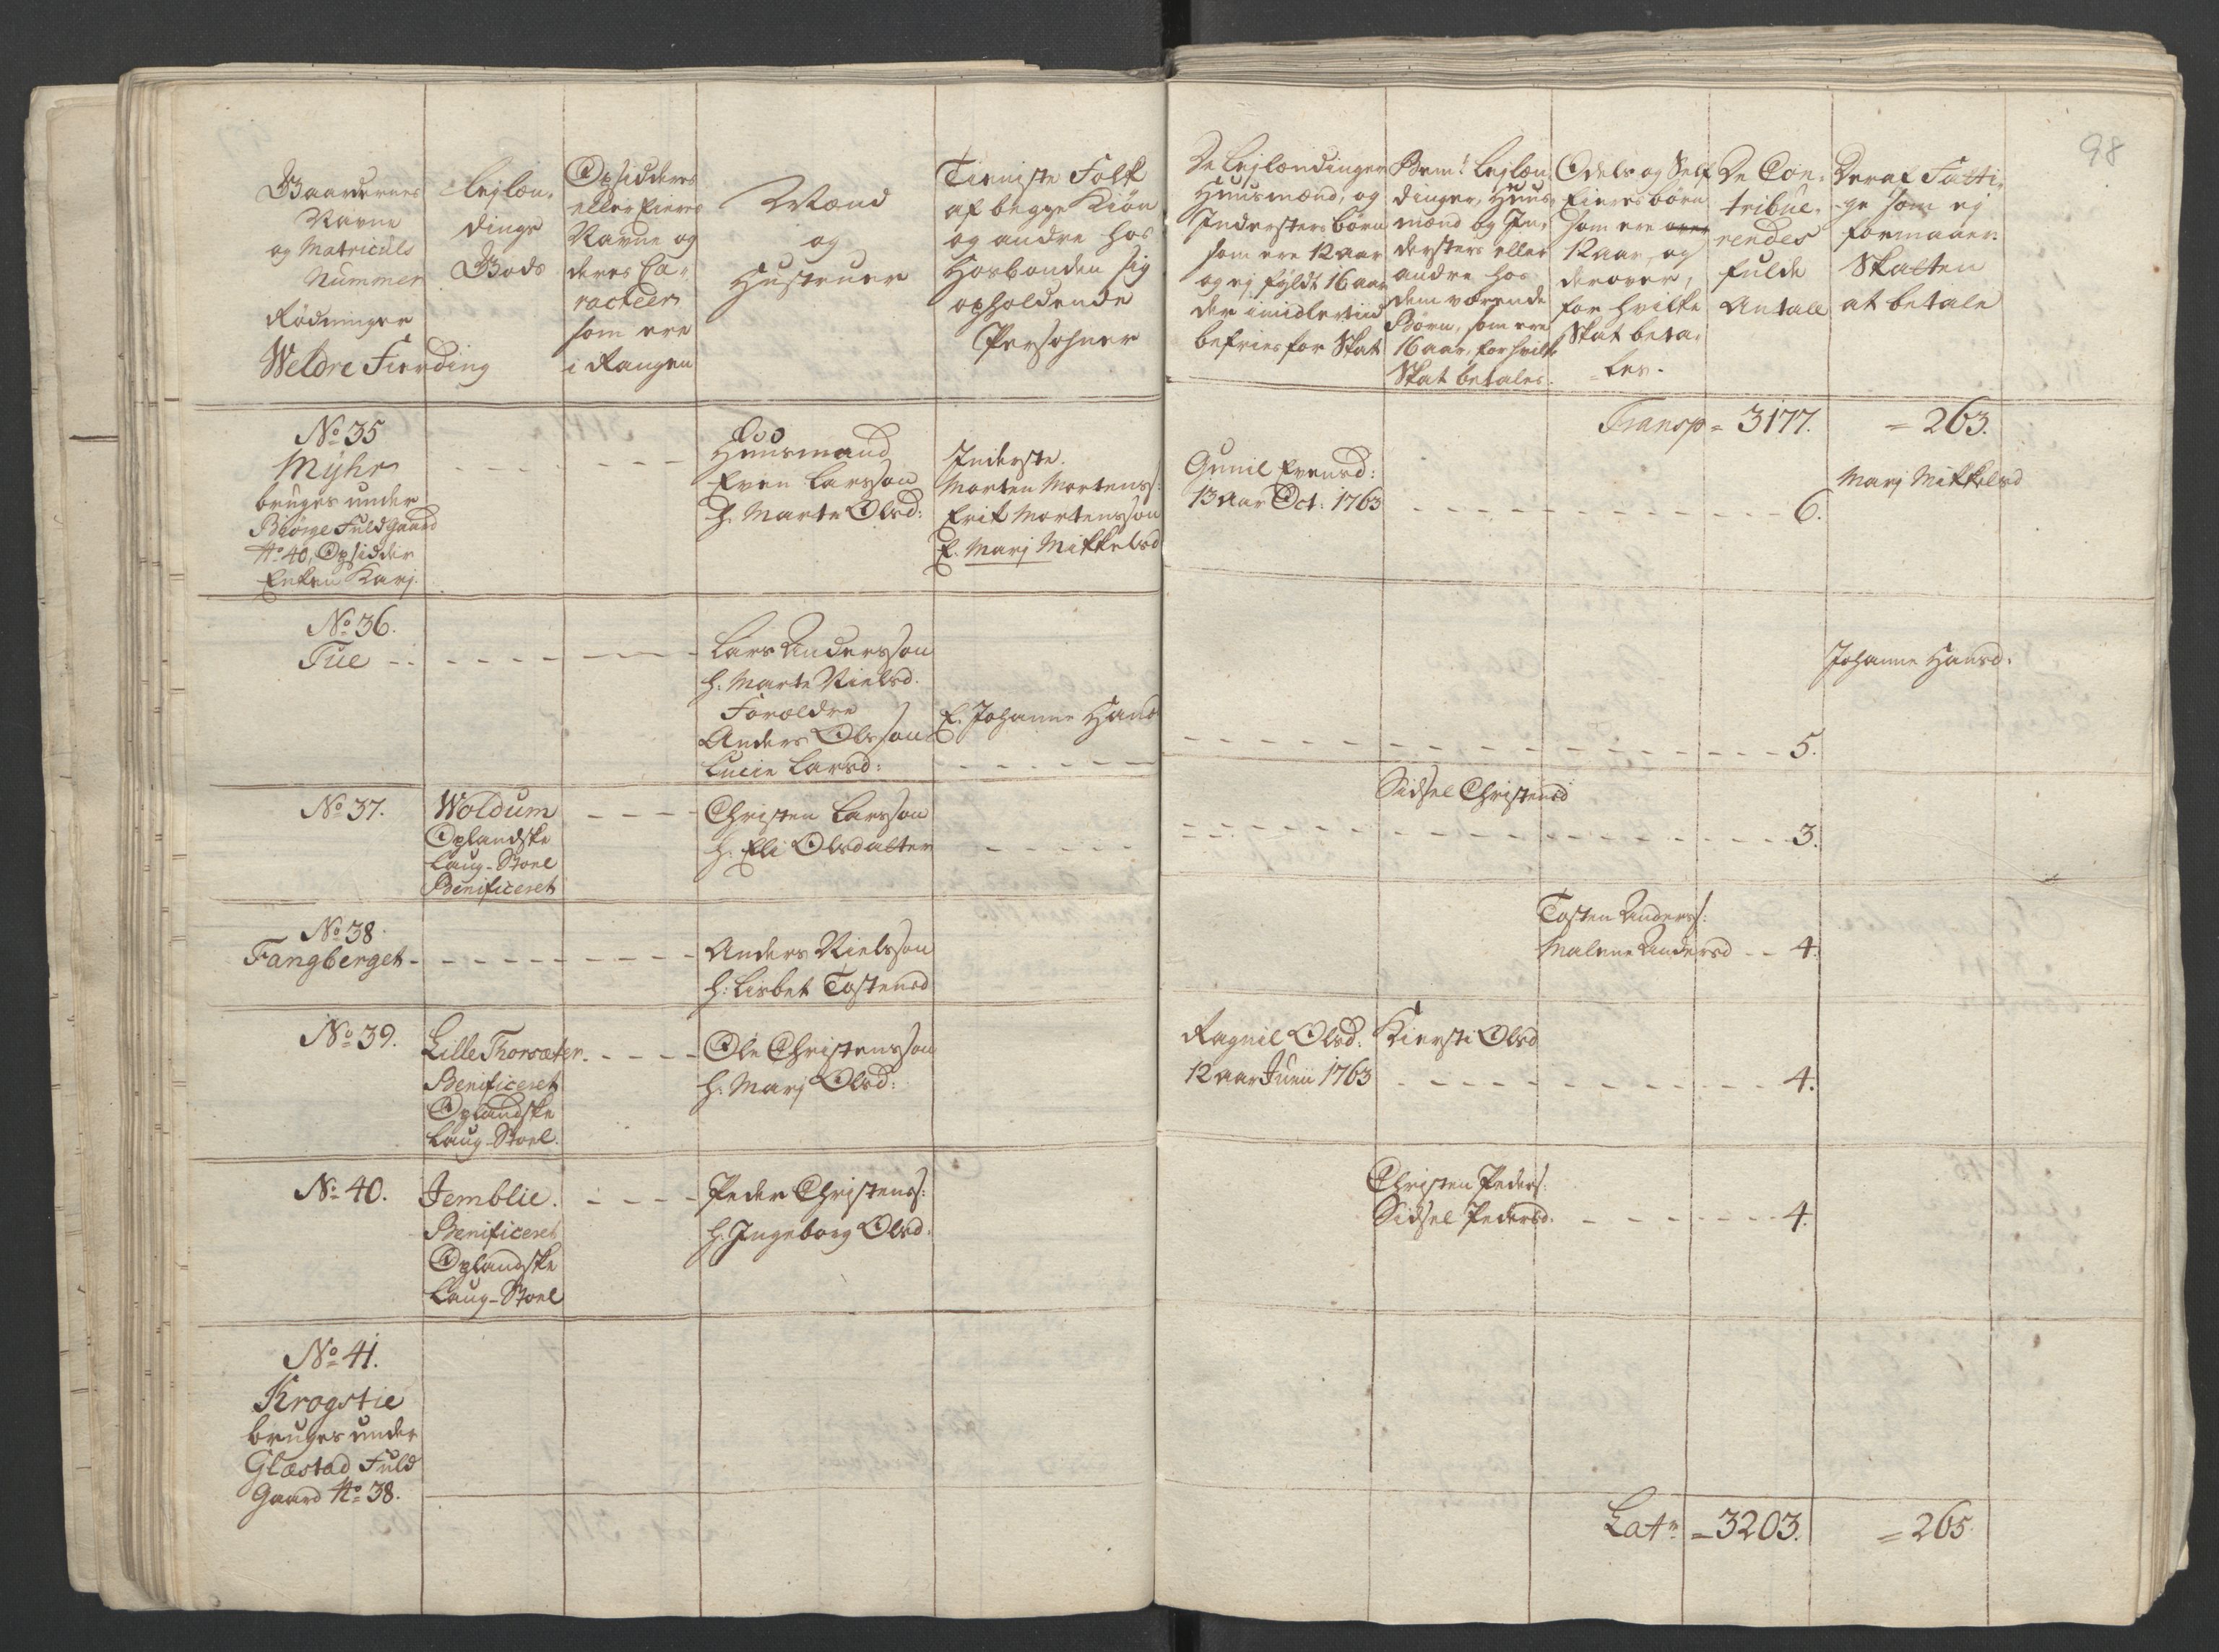 98
Gaardernes
Navne
og Matriculs
Nummer
Rødninger
Weldre Fierding
Leylæn-
dinge
Gods
Opsidderes
eller Eieres
Navne og
deres Ca-
racteer
som ere
i Rangen
Mænd
og
Hustruer
Tieniste Folk
af begge Kiøn
og andre hos
Hosbonden sig
opholdende
Persohner
De Lejlændinger
Huusmænd, og
Indersters børn
som ere 12 aar
og ej fyldt 16 aar
der imidlertiid
befries for Skat
Bem: Lejlæn
dinger, Huus-
mænd og In-
dersters eller
andre hos
dem værende
Børn, som ere
16 aar, for hvilke
Skat betales.
Odels og Self
Eieres børn
som ere
12 aar, og
derover,
for hvilke
Skat beta-
les.
De Con-
tribue-
rendes
fulde
Antall
Deraf Fatti-
ge som ej
formaaer
Skatten
at betale
Transp = 3177. = 263.
No 35
Myhr
bruges under
Bhörge Fuld Gaard
No 40, Opsidder
Enken Karj.
Huusmand
Even Larsson
h. Marte Olsd:
Inderste.
Morten Mortens:
Erik Mortensson
E. Marj Mikkelsd
Gunil Evensd:
13 Aar Oct: 1763
6.
Marj Mikkelsd
No 36.
Tue
Lars Andersson
h. Marte Nielsd.
Forældre
Anders Olsson
Lucie Larsd:
E. Johanne Hansd
5.
Johanne Hansd:
No 37.
Woldum
Oplandske
Laug-Stoel
Benificeret
Christen Larsson
h. Eli Olsdatter
Sidsel Christensd
3.
No 38.
Fangberget
Anders Nielsson
h: Lisbet Tostensd
Tosten Anderss:
Malene Andersd 4.
No 39.
Lille Thorsæter
Benificeret
Oplandske
Laug-Stoel.
Ole Christensson
h. Marj Olsd:
Ragnil Olsd:
12 aar Junii 1763
Kiersti Olsd
4.
No 40.
Jemblie.
Benificeret
Oplandske
Laug-Stoel
Peder Christens:
h. Ingeborg Olsd:
Christen Peders:
Sidsel Pedersd. 4.
No 41.
Krogstie
bruges under
Glæstad Fuld
Gaard No 38.
Lat = 3203. = 265.